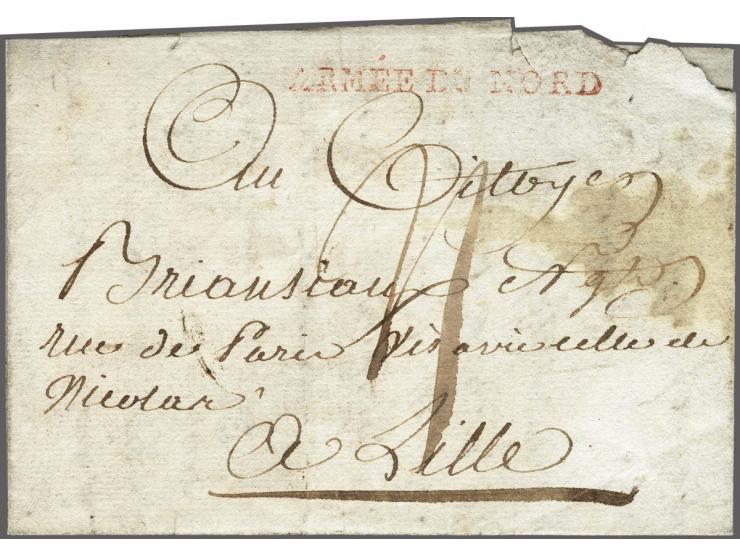 ARMÉE DU NORD
Au Citoyen
Briansiau Agt
rue de Paris vis avie celle de
Nicolas
a Lille